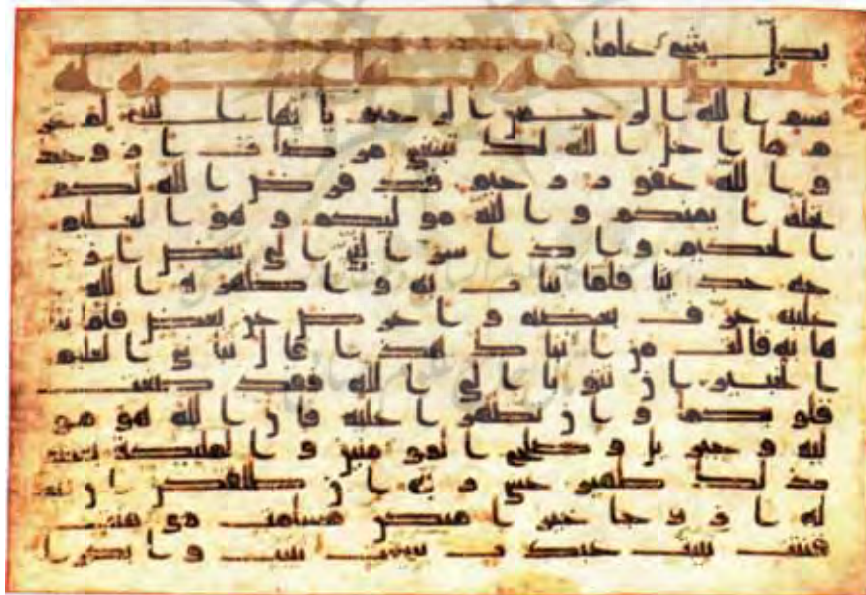 بكل شى علما
بسم الله الرحمن الرحيم يايها النبى لم تحر
م ما احل الله لك تبتغى مرضات ازوجك
والله غفور رحيم قد فرض الله لكم
تحلة ايمنكم والله موليكم وهو العليم
الحكيم واذ اسر النبى الى بعض ازو
جه حديثا فلما نبات به واظهره الله
عليه عرف بعضه واعرض عن بعض فلما نبا
ها به قالت من انباك هذا قال نبانى العليم
الخبير ان تتوبا الى الله فقد صغت
قلوبكما وان تظهرا عليه فان الله هو مو
ليه وجبريل وصلح المومنين والمليكة بعد
ذلك ظهير عسى ربه ان طلقكن ان يبد
له ازوجا خيرا منكن مسلمت مومنت
قنتت تيبت عبدت سيحت ثيبت وابكارا